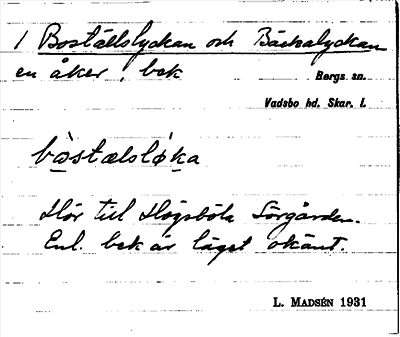 1 Boställslyckan och Bäckalyckan
en åker, bek
Bergs sn.
Vadsbo hd. Skar. l.
bo̱stælsløka
Hör till Högsböla Sörgården.
Enl. bek är läget okänt.
L. MADSÉN 1931